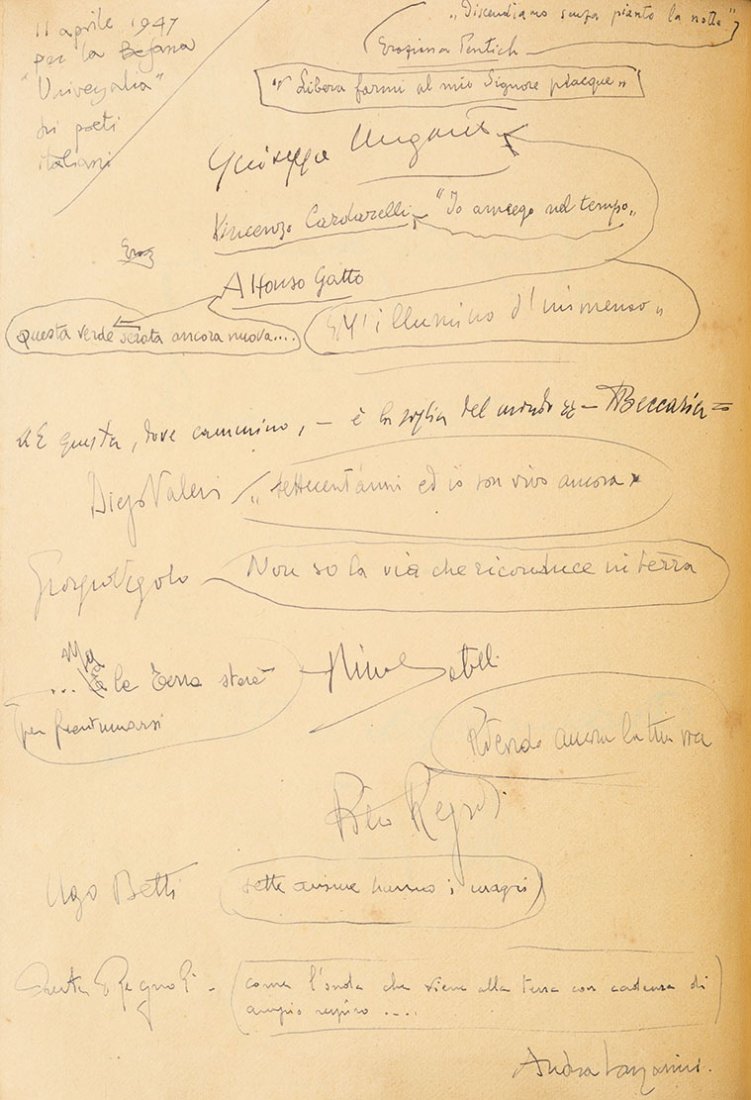 11 aprile 1947
per la Befana
"Universalia"
dei poeti
italiani
"Discendiamo senza pianto la notte"
"Libera farmi al mio Signore piacque"
Giuseppe Ungaretti
Vincenzo Cardarelli - "Io annego nel tempo"
Alfonso Gatto
questa verde serata ancora nuova....
"M'illumino d'immenso"
"E questa, dove cammino, - è la soglia del mondo" - Beccaria =
Diego Valeri "settecent'anni ed io son vivo ancora"
Giorgio Vigolo Non so la via che riconduce in terra
... Ma la Terra starà
per frantumarsi
ancora la tua
Ugo Betti sette anime hanno i magri
come l'onda che viene alla terra con cadenza di
ampio respiro ....
Andrea